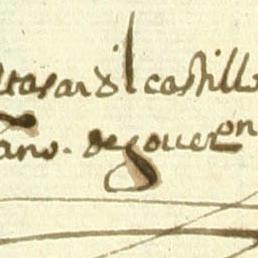 ltasar dl castillo
ano. de gouer^on